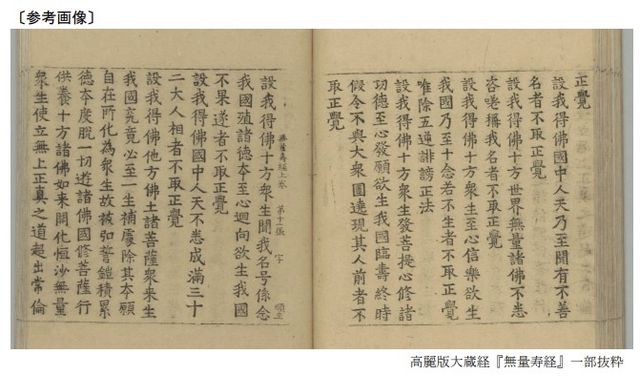 〔参考画像〕
正覺
設我得佛國中人天乃至聞有不善
名者不取正覺
設我得佛十方世界無量諸佛不悉
咨嗟稱我名者不取正覺
設我得佛十方衆生至心信樂欲生
我國乃至十念若不生者不取正覺
唯除五逆誹謗正法
設我得佛十方衆生發菩提心修諸
功德至心發願欲生我國臨壽終時
假令不與大衆圍遶現其人前者不
取正覺
設我得佛十方衆生聞我名号係念
無量壽經上卷 第十二張 字
我國殖諸德本至心迴向欲生我國
不果遂者不取正覺
設我得佛國中人天不悉成滿三十
二大人相者不取正覺
設我得佛他方佛土諸菩薩衆来生
我國究竟必至一生補處除其本願
自在所化為衆生故被弘誓鎧積累
德本度脫一切遊諸佛國修菩薩行
供養十方諸佛如来開化恒沙無量
衆生使立無上正真之道超出常倫
高麗版大蔵経『無量寿経』一部抜粋